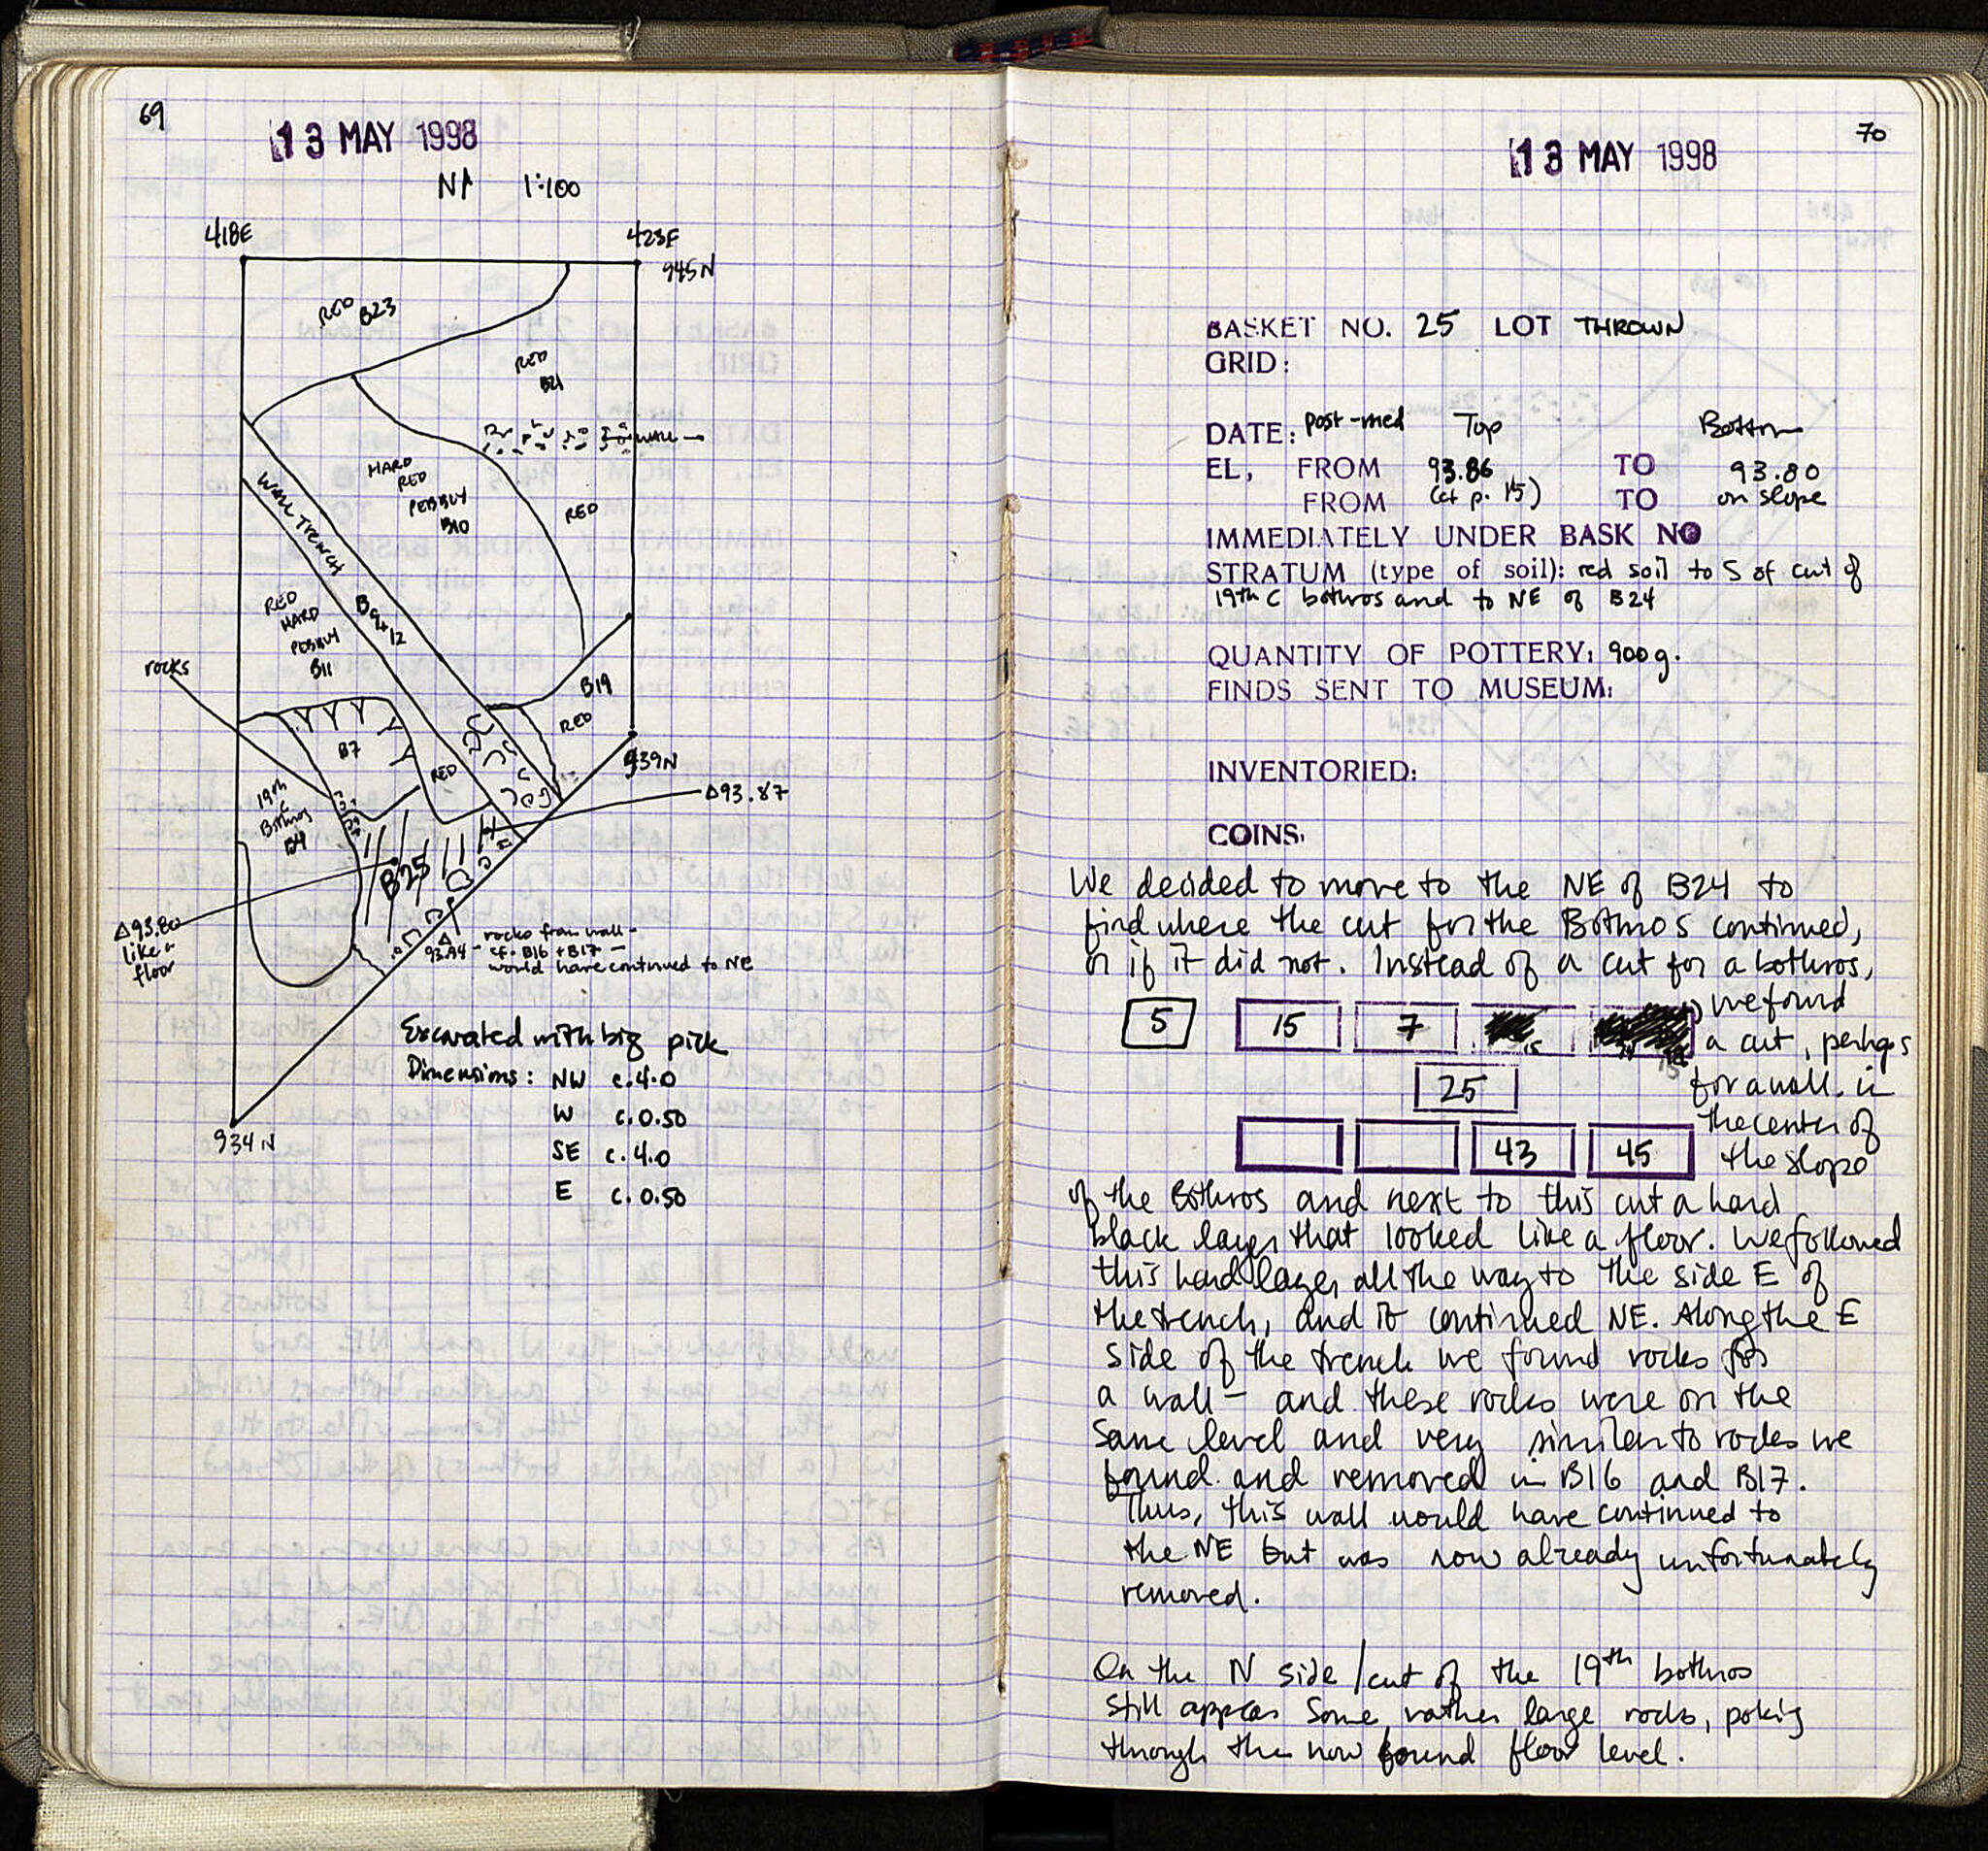 69
13 MAY 1998
N 1:100
418E
423E
945N
RED B23
RED
B21
WALL
HARD
RED
PEBBLY
B10
RED
WALL TRENCH
B9+12
RED
HARD
PEBBLY
B11
rocks
B19
RED
B7
RED
939N
Δ93.87
19th
C
Bothros
B24
B25
Δ93.80
like a
floor
Δ
93.94 - rocks from wall -
cf. B16 + B17 -
would have continued to NE
Excavated with big pick
Dimensions: NW c.4.0
W c.0.50
SE c.4.0
E c.0.50
934N
70
13 MAY 1998
BASKET NO. 25 LOT THROWN
GRID:
DATE: post-med Top Bottom
EL, FROM 93.86 TO 93.80
FROM (cf p. 15) TO on slope
IMMEDIATELY UNDER BASK NO
STRATUM (type of soil): red soil to S of cut of
19th C bothros and to NE of B24
QUANTITY OF POTTERY: 900g.
FINDS SENT TO MUSEUM:
INVENTORIED:
COINS:
We decided to move to the NE of B24 to
find where the cut for the Bothros continued,
or if it did not. Instead of a cut for a bothros,
we found
a cut, perhaps
for a wall in
the center of
the slope
5 15 7
25
43 45
of the Bothros and next to this cut a hard
black layer that looked like a floor. We followed
this hard layer all the way to the side E of
the trench, and it continued NE. Along the E
side of the trench we found rocks for
a wall - and these rocks were on the
same level and very similar to rocks we
found and removed in B16 and B17.
Thus, this wall would have continued to
the NE but was now already unfortunately
removed.
On the N side / cut of the 19th bothros
still appear some rather large rocks, poking
through the now found floor level.